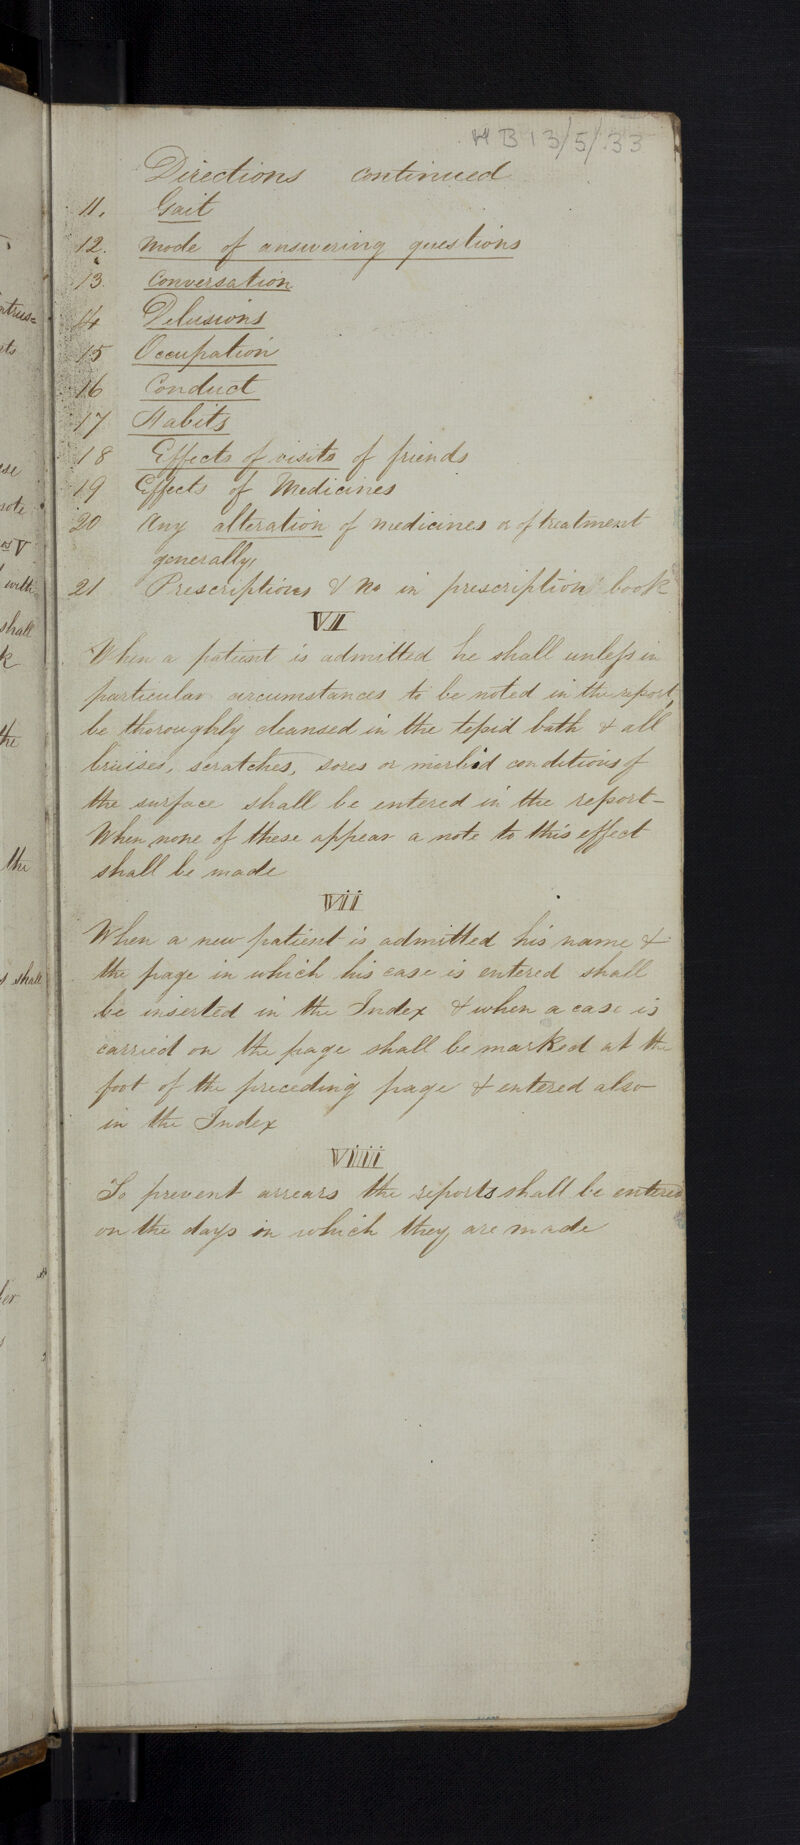 HB13/5/33
Directions continued
11. Gait
12. Mode of answering questions
13 Conversation
14 Delusions
15 Occupation
16 Conduct
17 Habits
18 Effects of visits of friends
19 Effects of Medicines
20 Any alteration of medicines or of treatment
generally
21 Prescriptions & No in prescription book
VI
When a patient is admitted he shall unless in
particular circumstances to be noted in the report,
be thoroughly cleansed in the tepid bath & all
bruises, scratches, sores or morbid conditions of
the surface shall be entered in the report-
When none of these appear a note to this effect
shall be made
VII
When a new patient is admitted his name &
the page in which his case is entered shall
be inserted in the Index & when a case is
carried on the page shall be marked at the
foot of the preceding page & entered also
in the Index
VIII
To prevent arrears the reports shall be entered
on the days in which they are made